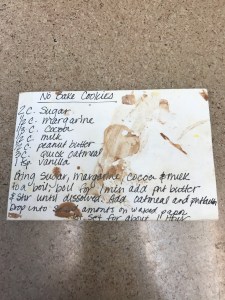 No Bake Cookies
2 C. Sugar
1/2 C. margarine
1/3 C. Cocoa
1/2 C. milk
C. peanut butter
C. quick oatmeal
1 tsp vanilla
Bring Sugar, margarine, cocoa & milk
to a boil, boil for 1 min add nut butter
& stir until dissolved. Add oatmeal and
Drop into amounts on waxed paper
set for about 1 Hour